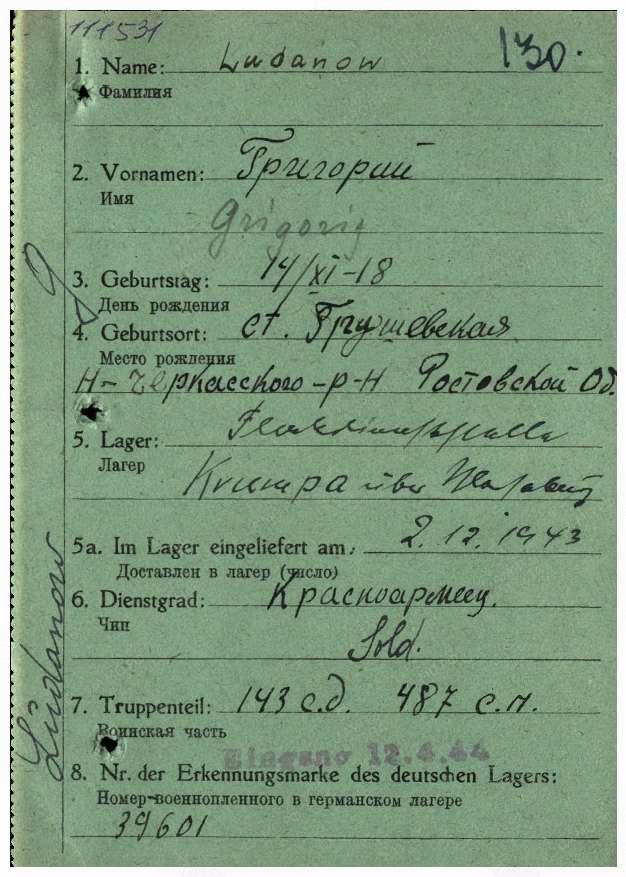 111531
130.
1. Name: Ludanow
Фамилия
2. Vornamen: Григорий
Имя
Grigorij
3. Geburtstag: 14/XI-18
День рождения
4. Geburtsort: ст. Грушевская
Место рождения
Н-Черкасского-р-н Ростовской Об.
5. Lager:
Лагер
Krumpa über
5a. Im Lager eingeliefert am: 2.12.1943
Доставлен в лагер (число)
6. Dienstgrad: Красноармеец.
Чин
Sold.
7. Truppenteil: 143 с.д. 487 с.п.
Воинская часть
Eingang 12.4.44
8. Nr. der Erkennungsmarke des deutschen Lagers:
Номер военнопленного в германском лагере
39601
Ludanow